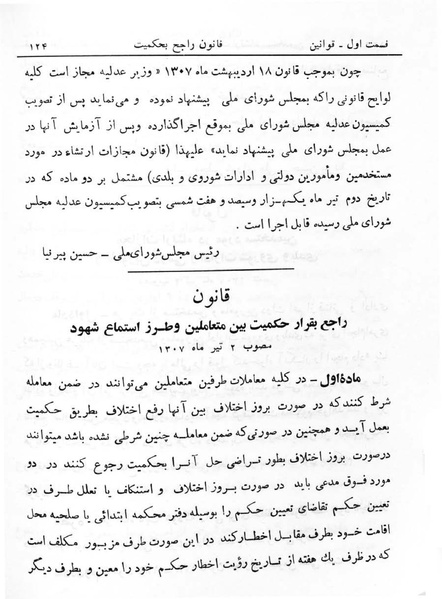 قسمت اول ـ قوانین قانون راجع بحکمیت ۱۲۴
چون بموجب قانون ۱۸ اردیبهشت ماه ۱۳۰۷ « وزیر عدلیه مجاز است کلیه
لوایح قانونی راکه بمجلس شورای ملی پیشنهاد نموده و می‌نماید پس از تصویب
کمیسیون عدلیه مجلس شورای ملی بموقع اجراگذارده وپس از آزمایش آنها در
عمل بمجلس شورای ملی پیشنهاد نماید» علیهذا (قانون مجازات ارتشاء در مورد
مستخدمین ومأمورین دولتی و ادارات شوروی و بلدی) مشتمل بر دو ماده که در
تاریخ دوم تیر ماه یکهزار وسیصد و هفت شمسی بتصویب کمیسیون عدلیه مجلس
شورای ملی رسیده قابل اجرا است .
رئیس مجلس شورای ملی ـ حسین پیرنیا
قانون
راجع بقرار حکمیت بین متعاملین وطرز استماع شهود
مصوب ۲ تیر ماه ۱۳۰۷
مادۀ اول ـ در کلیه معاملات طرفین متعاملین می‌توانند در ضمن معامله
شرط کنند که در صورت بروز اختلاف بین آنها رفع اختلاف بطریق حکمیت
بعمل آید و همچنین در صورتی‌که ضمن معاملــه چنین شرطی نشده باشد میتوانند
درصورت بروز اختلاف بطور تراضی حل آنرا بحکمیت رجوع کنند در دو
مورد فوق مدعی باید در صورت بروز اختلاف و استنکاف یا تعلل طرف در
تعیین حکم تقاضای تعیین حکم را بوسیله دفتر محکمه ابتدائی یا صلحیه محل
اقامت خود بطرف مقابل اخطار کند در این صورت طرف مزبور مکلف است
که در ظرف یك هفته از تاریخ رؤیت اخطار حکم خود را معین و بطرف دیگر